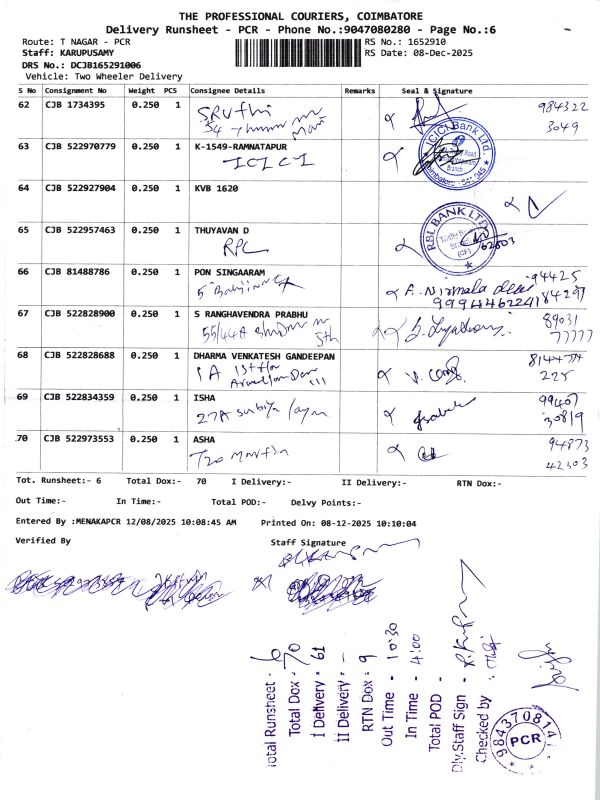 THE PROFESSIONAL COURIERS, COIMBATORE
Delivery Runsheet - PCR - Phone No.:9047080280 - Page No.:6
Route: T NAGAR - PCR RS No.: 1652910
Staff: KARUPUSAMY RS Date: 08-Dec-2025
DRS No.: DCJB165291006
Vehicle: Two Wheeler Delivery
S No Consignment No Weight PCS Consignee Details Remarks Seal & Signature
62 CJB 1734395 0.250 1 SRUthi 984322
3049
63 CJB 522970779 0.250 1 K-1549-RAMNATAPUR
ICICI
ICICI Bank Ltd.
Branch
64 CJB 522927904 0.250 1 KVB 1620
65 CJB 522957463 0.250 1 THUYAVAN D
RPC
RBL BANK LTD
66 CJB 81488786 0.250 1 PON SINGAARAM
94425
84297
9994462241
67 CJB 522828900 0.250 1 S RANGHAVENDRA PRABHU
55/44A
89031
77777
68 CJB 522828688 0.250 1 DHARMA VENKATESH GANDEEPAN
1A 1st floor
225
69 CJB 522834359 0.250 1 ISHA
27A
99407
30819
70 CJB 522973553 0.250 1 ASHA
94873
42303
Tot. Runsheet:- 6 Total Dox:- 70 I Delivery:- II Delivery:- RTN Dox:-
Out Time:- In Time:- Total POD:- Delvy Points:-
Entered By :MENAKAPCR 12/08/2025 10:08:45 AM Printed On: 08-12-2025 10:10:04
Verified By Staff Signature
Total Runsheet - 6
Total Dox - 70
I Delivery - 61
II Delivery - -
RTN Dox - 9
Out Time - 10:30
In Time - 4:00
Total POD -
Dly.Staff Sign -
Checked by
PCR